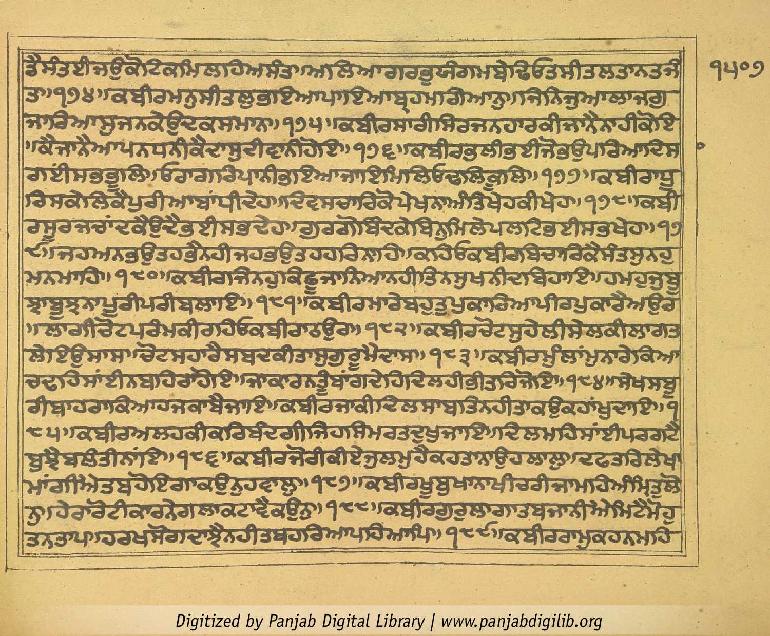 ਤੈਸੰਤਈਜਉਕੋਟਿਕਮਿਲਹਿਅਸੰਤ॥ਮਲਿਆਗਰਭੁਯੰਗਮਬੇਢਿਓਤਸੀਤਲਤਾਨਤਜੰ
੧੫੦੭
ਤ॥੧੭੪॥ਕਬੀਰਮਨੁਸੀਤਲੁਭਇਆਪਾਇਆਬ੍ਰਹਮਗਿਆਨੁ॥ਜਿਨਿਜੁਆਲਾਜਗੁ
ਜਾਰਿਆਸੁਜਨਕੇਉਦਕਸਮਾਨਿ॥੧੭੫॥ਕਬੀਰਸਾਰੀਸਿਰਜਨਹਾਰਕੀਜਾਨੈਨਾਹੀਕੋਇ
॥ਕੈਜਾਨੈਆਪਨਧਨੀਕੈਦਾਸੁਦੀਵਾਨੀਹੋਇ॥੧੭੬॥ਕਬੀਰਭਲੀਭਈਜੋਭਉਪਰਿਆਦਿਸਾ
ਗਈਸਭਭੂਲਿ॥ਓਰਾਗਰਿਪਾਨੀਭਇਆਜਾਇਮਿਲਿਓਢਲਿਕੂਲਿ॥੧੭੭॥ਕਬੀਰਾਧੂ
ਰਿਸਕੇਲਿਕੈਪੁਰੀਆਬਾਂਧੀਦੇਹ॥ਦਿਵਸਚਾਰਿਕੋਪੇਖਨਾਅੰਤਿਖੇਹਕੀਖੇਹ॥੧੭੮॥ਕਬੀ
ਰਸੂਰਜਚਾਂਦਕੈਉਦੈਭਈਸਭਦੇਹ॥ਗੁਰਗੋਬਿੰਦਕੇਬਿਨੁਮਿਲੇਪਲਟਿਭਈਸਭਖੇਹ॥੧੭
੯॥ਜਹਅਨਭਉਤਹਭੈਨਹੀਜਹਭਉਤਹਹਰਿਨਾਹਿ॥ਕਹਿਓਕਬੀਰਬਿਚਾਰਿਕੈਸੰਤਸੁਨਹੁ
ਮਨਮਾਹਿ॥੧੮੦॥ਕਬੀਰਜਿਨਹੁਕਿਛੂਜਾਨਿਆਨਹੀਤਿਨਸੁਖਨੀਦਬਿਹਾਇ॥ਹਮਹੁਜੁਬੂ
ਝਾਬੂਝਨਾਪੂਰੀਪਰੀਬਲਾਇ॥੧੮੧॥ਕਬੀਰਮਾਰੇਬਹੁਤੁਪੁਕਾਰਿਆਪੀਰਪੁਕਾਰੈਅਉਰ
॥ਲਾਗੀਚੋਟਪ੍ਰੇਮਕੀਰਹਿਓਕਬੀਰਾਠਉਰ॥੧੮੨॥ਕਬੀਰਚੋਟਸੁਹੇਲੀਸੇਲਕੀਲਾਗਤ
ਲੇਇਉਸਾਸ॥ਚੋਟਸਹਾਰੈਸਬਦਕੀਤਾਸੁਗੁਰੂਮੈਦਾਸ॥੧੮੩॥ਕਬੀਰਮੁੰਲਾਂਮੁਨਾਰੇਕਿਆ
ਚਢਹਿਸਾਂਈਨਬਹਰਾਹੋਇ॥ਜਾਕਾਰਨਿਤੂੰਬਾਂਗਦੇਹਿਦਿਲਹੀਭੀਤਰਿਜੋਇ॥੧੮੪॥ਸੇਖਸਬੂ
ਰੀਬਾਹਰਾਕਿਆਹਜਕਾਬੈਜਾਇ॥ਕਬੀਰਜਾਕੀਦਿਲਸਾਬਤਿਨਹੀਤਾਕਉਕਹਾਂਖੁਦਾਇ॥੧
੮੫॥ਕਬੀਰਅਲਹਕੀਕਰਿਬੰਦਗੀਜਿਹਸਿਮਰਤਦੁਖੁਜਾਇ॥ਦਿਲਮਹਿਸਾਂਈਪਰਗਟੈ
ਬੁਝੈਬਲੰਤੀਨਾਂਇ॥੧੮੬॥ਕਬੀਰਜੋਰੀਕੀਏਜੁਲਮੁਹੈਕਹਤਾਨਾਉਹਲਾਲੁ॥ਦਫਤਰਿਲੇਖਾ
ਮਾਂਗੀਐਤਬਹੋਇਗਾਕਉਨੁਹਵਾਲੁ॥੧੮੭॥ਕਬੀਰਖੂਬੁਖਾਨਾਖੀਚਰੀਜਾਮਹਿਅੰਮ੍ਰਿਤੁਲੋ
ਨੁ॥ਹੇਰਾਰੋਟੀਕਾਰਨੇਗਲਾਕਟਾਵੈਕਉਨੁ॥੧੮੮॥ਕਬੀਰਗੁਰੁਲਾਗਾਤਬਜਾਨੀਐਮਿਟੈਮੋਹੁ
ਤਨਤਾਪ॥ਹਰਖਸੋਗਦਾਝੈਨਹੀਤਬਹਰਿਆਪਹਿਆਪਿ॥੧੮੯॥ਕਬੀਰਰਾਮੁਕਹਨਮਹਿ
Digitized by Panjab Digital Library | www.panjabdigilib.org